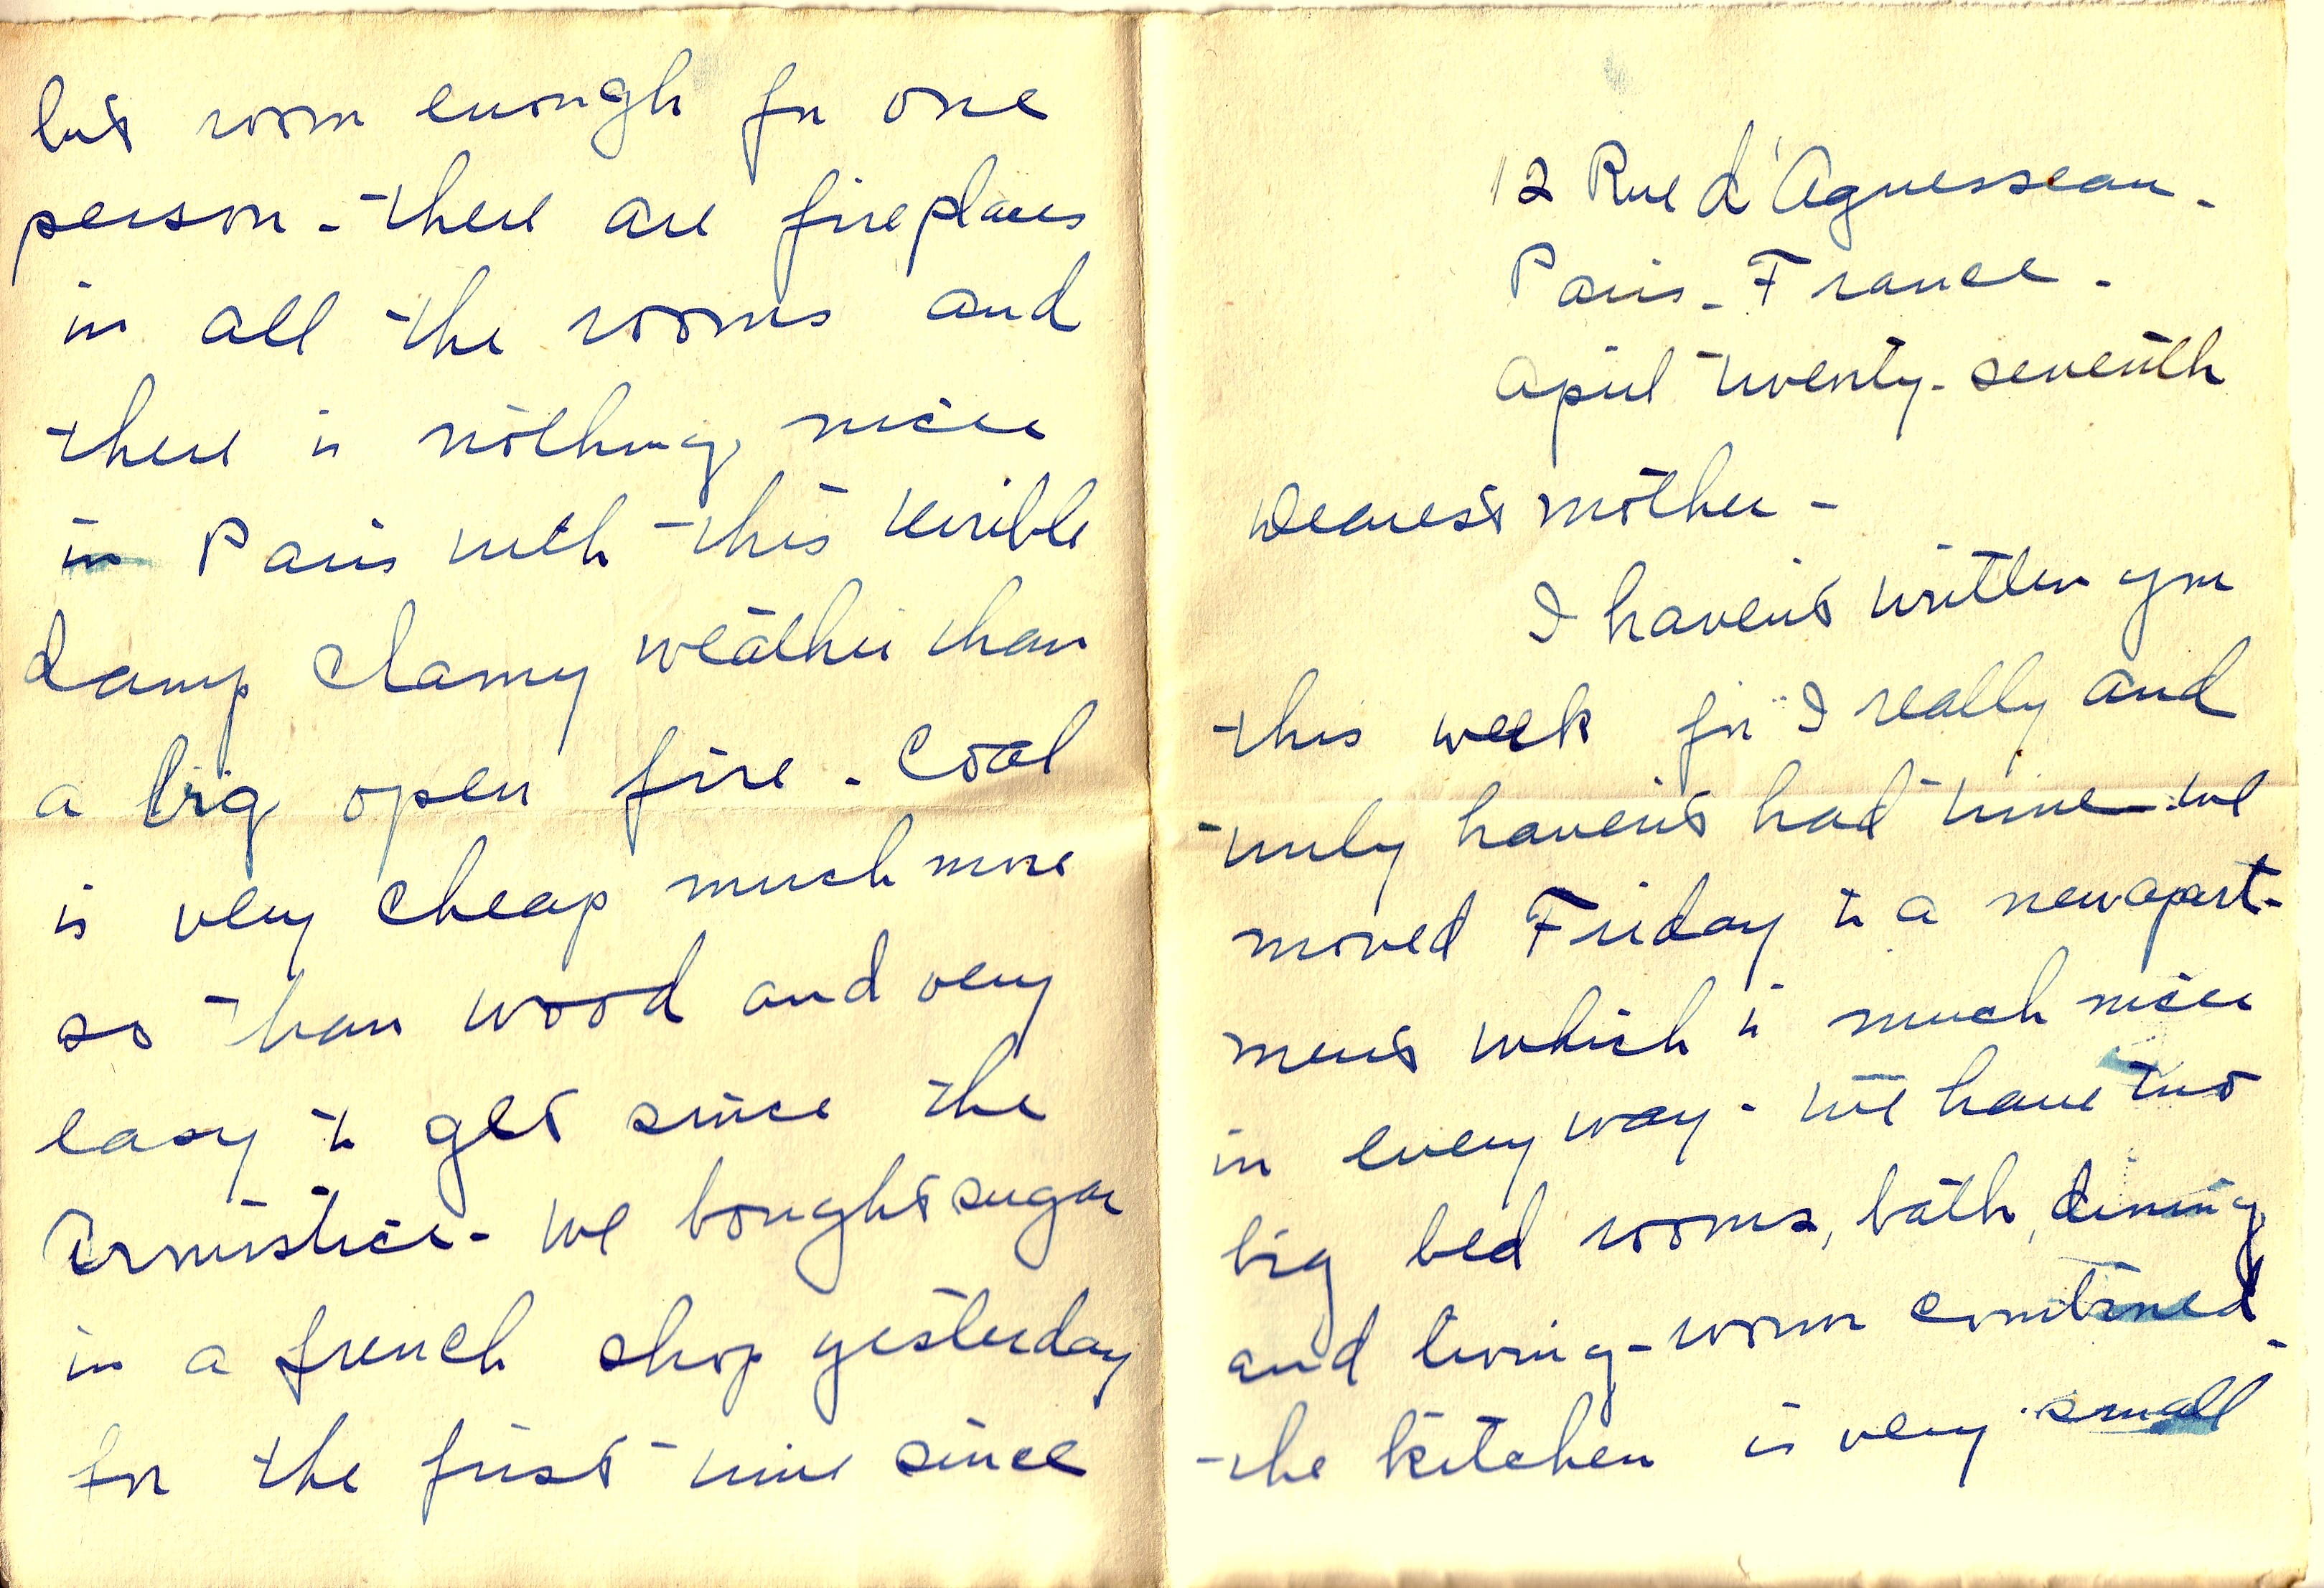 12 Rue d'Aguesseau -
Paris - France -
April twenty-seventh
Dearest mother -
I haven't written you
this week for I really and
truly haven't had time - we
moved Friday to a new apart-
ment which is much nicer
in every way - We have two
big bed rooms, bath, dining
and living-room combined -
the kitchen is very small
but room enough for one
person - there are fireplaces
in all the rooms and
there is nothing nicer
in Paris with this terrible
damp clamy weather than
a big open fire - Coal
is very cheap much more
so than wood and very
easy to get since the
Armistice - We bought sugar
in a french shop yesterday
for the first time since